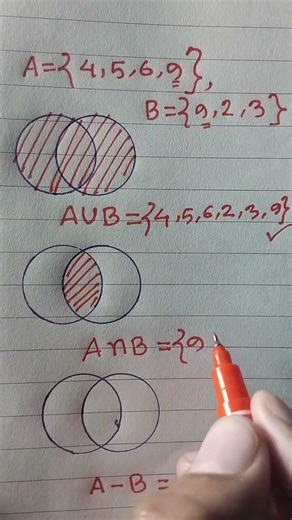 A={4,5,6,9},
B={9,2,3}
A∪B={4,5,6,2,3,9}
A∩B={9
A-B=